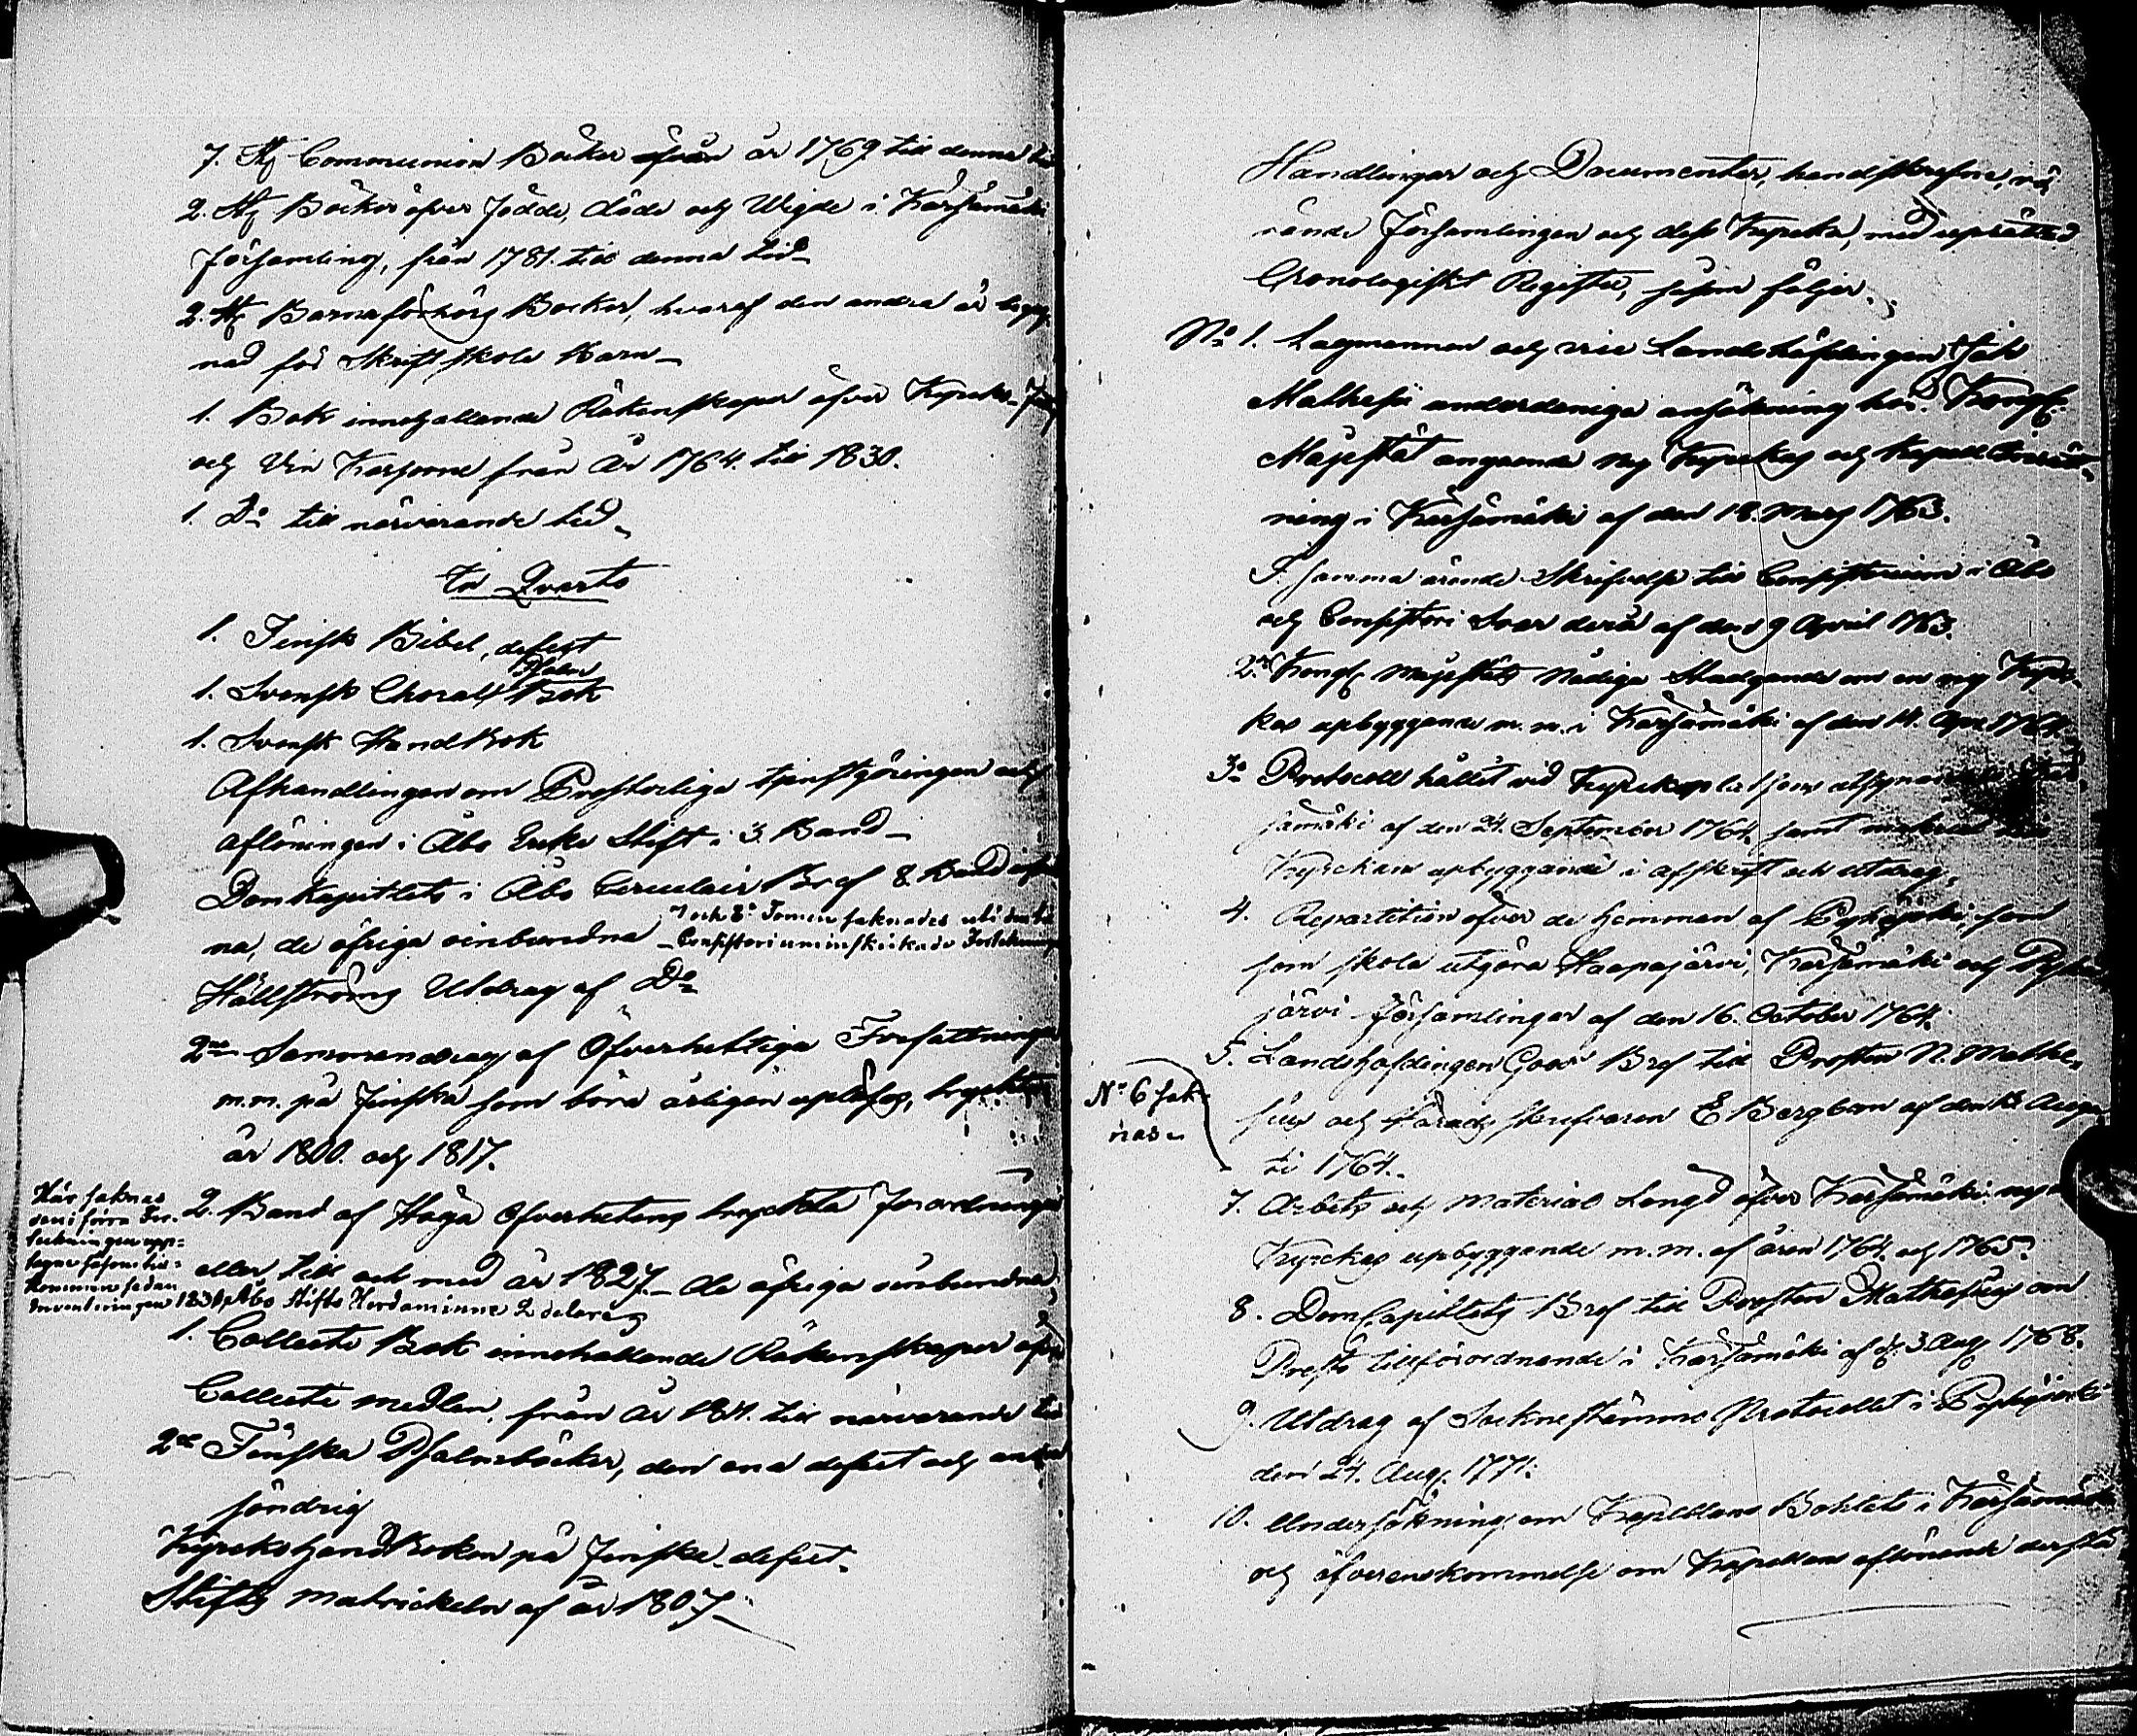 7. st Communion Böcker ifrån år 1769 till denna tid
2. st Böcker öfver födde, döde och Wigde i Kärsämäki
församling, från 1781. till denna tid
2. st Barnaförhörs Bocker, hvaraf den andra är begag-
nad för Skriftskole Barn
1. Bok innehållande Räkenskaper öfver Kyrko-
och Vin Kassorne från År 1764. till 1830.
1. Do till närvarande tid
In Qvarto
1. Finsk Bibel, defect
1. Svensk Choral Psalm Bok
1. Svensk HandBok
Afhandlingen om Presterliga tjenstgöringen och
aflöningen i Åbo Ercke Stift i 3. Band
Domkapitlets i Åbo Circulair Bref 8 Band
na, de öfriga oinbundna 7 och 8: Tomen saknades
Consistorium inskickade Forteckning
Hällströms Utdrag af Do
2ne Sammandrag af Öfverhetliga Forfattningar
m.m. på Finska som böra årligen upläsas, tryckta
år 1800. och 1817.
Här saknas
den i förra For-
teckningen upp-
tagne såsom till-
kommen sedan
Inventeringen 1830 Åbo Stifts Herdaminne 2 delar
2. Band af Höga Öfverhetens tryckta Forordningar
eller till och med år 1827. de öfriga oinbundna
1. Collecte Bok innehallande Räkenskaper öfver
Collecte medlen, från År 1811. till närvarande tid
2ne Finska Psalmböcker, den ena defect och andra
söndrig
Kyrko HandBoken på Finska defect
Stifts matrickeln af år 1807
Handlingar och Documenter, handskrefne, rö-
rande Församlingen och dess Kyrcka, med uprättad
Cronologiskt Register, såsom följer.
No 1. Lagmannen och vice Landshöfdingen Joh
Mathesii underdåniga ansökning hos Kongl
Majestät angående ny Kyrckas och Kapell Inrätt-
ning i Kärsämäki af den 18. Mars 1763.
I samma ärende Skrifvelse till Consistorium i Åbo
och Consistorii Svar derå af den 9 April 1763.
2. Kongl Majestäts Nådiga Stadgande om en ny Kyrc-
kas upbyggande m.m. i Kärsämäki af den 14. Apr 1764
3o Protocoll hållet vid Kyrckoplatsens utsynande i Kär-
sämäki af den 24. September 1764. samt
Kyrckans upbyggande i afskrift och utdrag.
4. Repartition öfver de hemman af Pyhäjocki, som
som skola utgöra Haapajärvi, Kärsämäki och Pyhä-
järvi församlingar af den 16. October 1764.
5. Landshöfdingen Bref till Prosten N. Mathe-
sius och Härads skrifvaren E Bergbom af den Augus-
ti 1764.
No 6 sak-
nas
7. Arbets och Material Längd öfver Kärsämäki nya
Kyrckas upbyggande m.m. af åren 1764. och 1765.
8. DomCapittlets Bref till Prosten Mathesius om
Prests tillförordnande i Kärsämäki af d. 3 Aug 1768.
9. Utdrag af Sockne stämmo Protocollet i Pyhäjocki
den 24. Aug. 1771.
10. Undersökning om Kapellans Bohlets i Kärsämäki
och öfverenskommelse om Kapellans aflönande